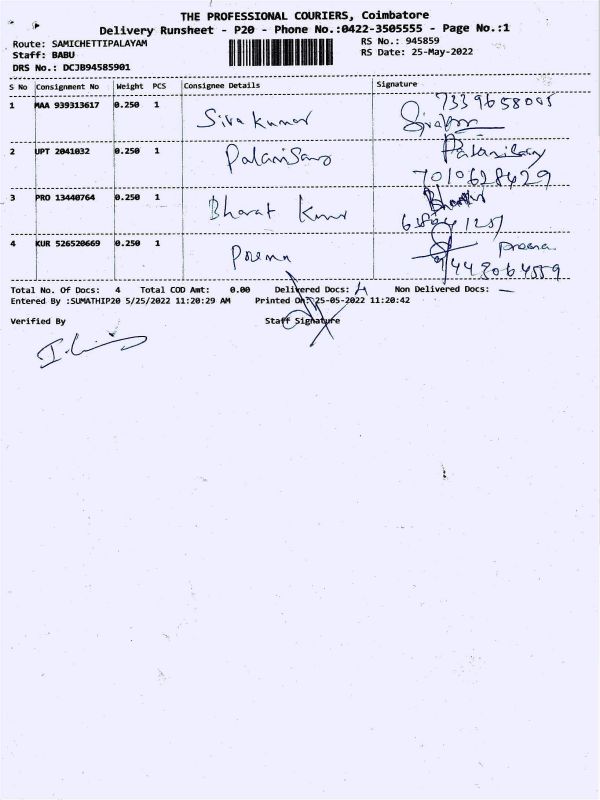 THE PROFESSIONAL COURIERS, Coimbatore
Delivery Runsheet - P20 - Phone No.:0422-3505555 - Page No.:1
Route: SAMICHETTIPALAYAM
RS No.: 945859
Staff: BABU
RS Date: 25-May-2022
DRS No.: DCJB94585901
S No Consignment No Weight PCS Consignee Details Signature
1 MAA 939313617 0.250 1 Siva Kumar 7339658005
2 UPT 2041032 0.250 1 Palanisamy Palanisamy
7010628429
3 PRO 13440764 0.250 1 Bharat Kumar
4 KUR 526520669 0.250 1 Preena preena
Total No. Of Docs: 4 Total COD Amt: 0.00 Delivered Docs: 4 Non Delivered Docs: —
Entered By :SUMATHIP20 5/25/2022 11:20:29 AM Printed On: 25-05-2022 11:20:42
Verified By Staff Signature